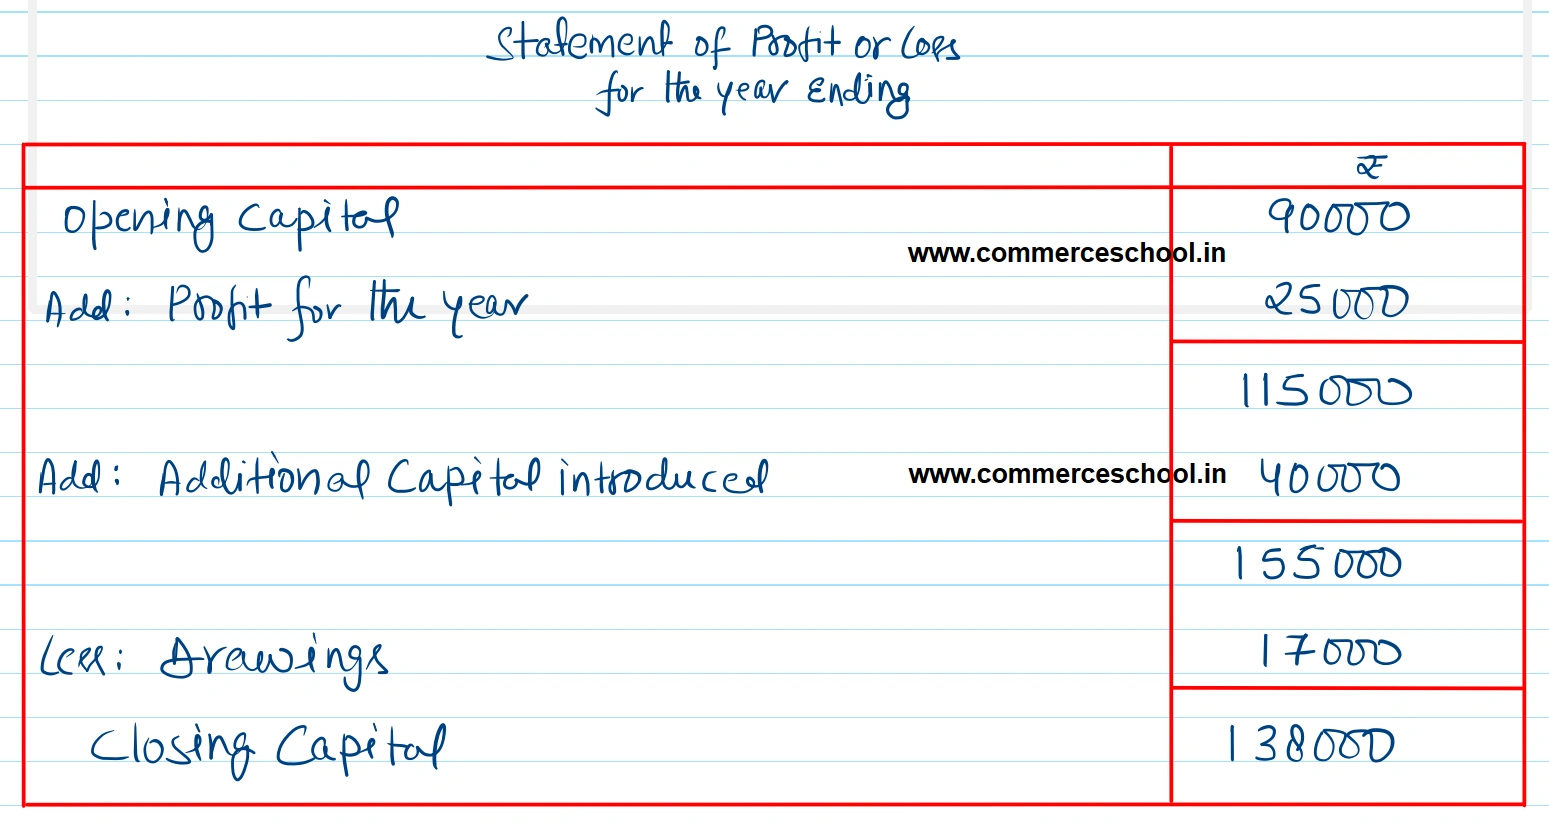 Statement of Profit or Loss
for the year Ending
₹
Opening Capital 90000
www.commerceschool.in
Add: Profit for the year 25000
115000
Add: Additional Capital introduced www.commerceschool.in 40000
155000
Less: Drawings 17000
Closing Capital 138000